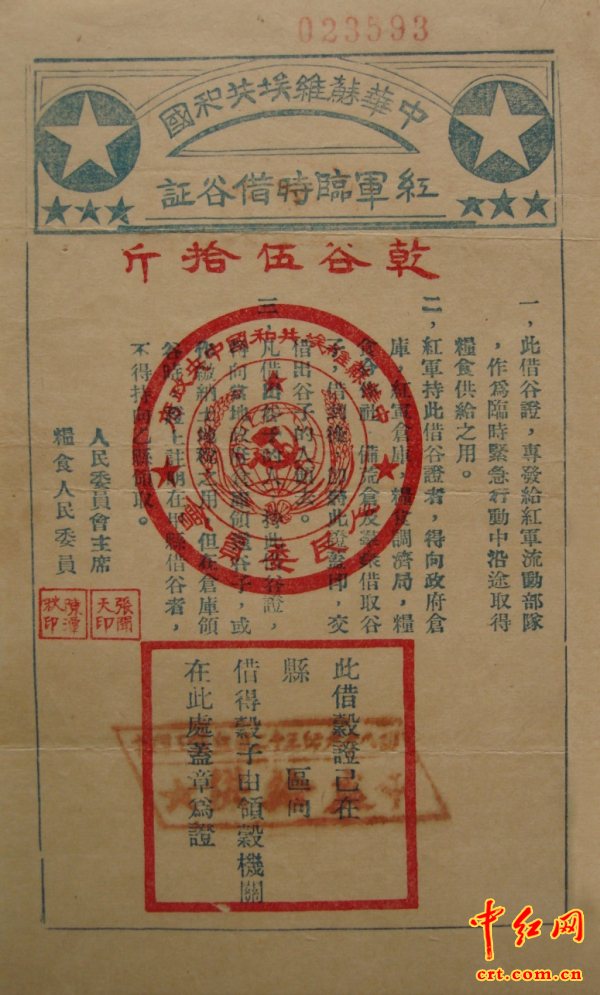 023593
中華蘇維埃共和國
紅軍臨時借谷証
乾谷伍拾斤
一，此借谷證，專發給紅軍流動部隊
，作爲臨時緊急行動中沿途取得
糧食供給之用。
二，紅軍持此借谷證者，得向政府倉
庫，紅軍倉庫，糧食調濟局，糧
食合作社，備荒倉及羣衆借取谷
子，借到後，即將此證蓋印，交
借出谷子的人領去。
三，凡借出谷子的人，持此借谷證，
得向當地政府倉庫領還谷子，或
作繳納土地稅之用，但在倉庫領
谷時，證上註明在甲縣借谷者，
不得持向乙縣領取。
人民委員會主席
糧食人民委員
張聞天印
陳潭秋印
中華蘇維埃共和國中央政府
人民委員會
此借穀證已在
縣 區向
借得穀子由領穀機關
在此處蓋章爲證
中红网
crt.com.cn